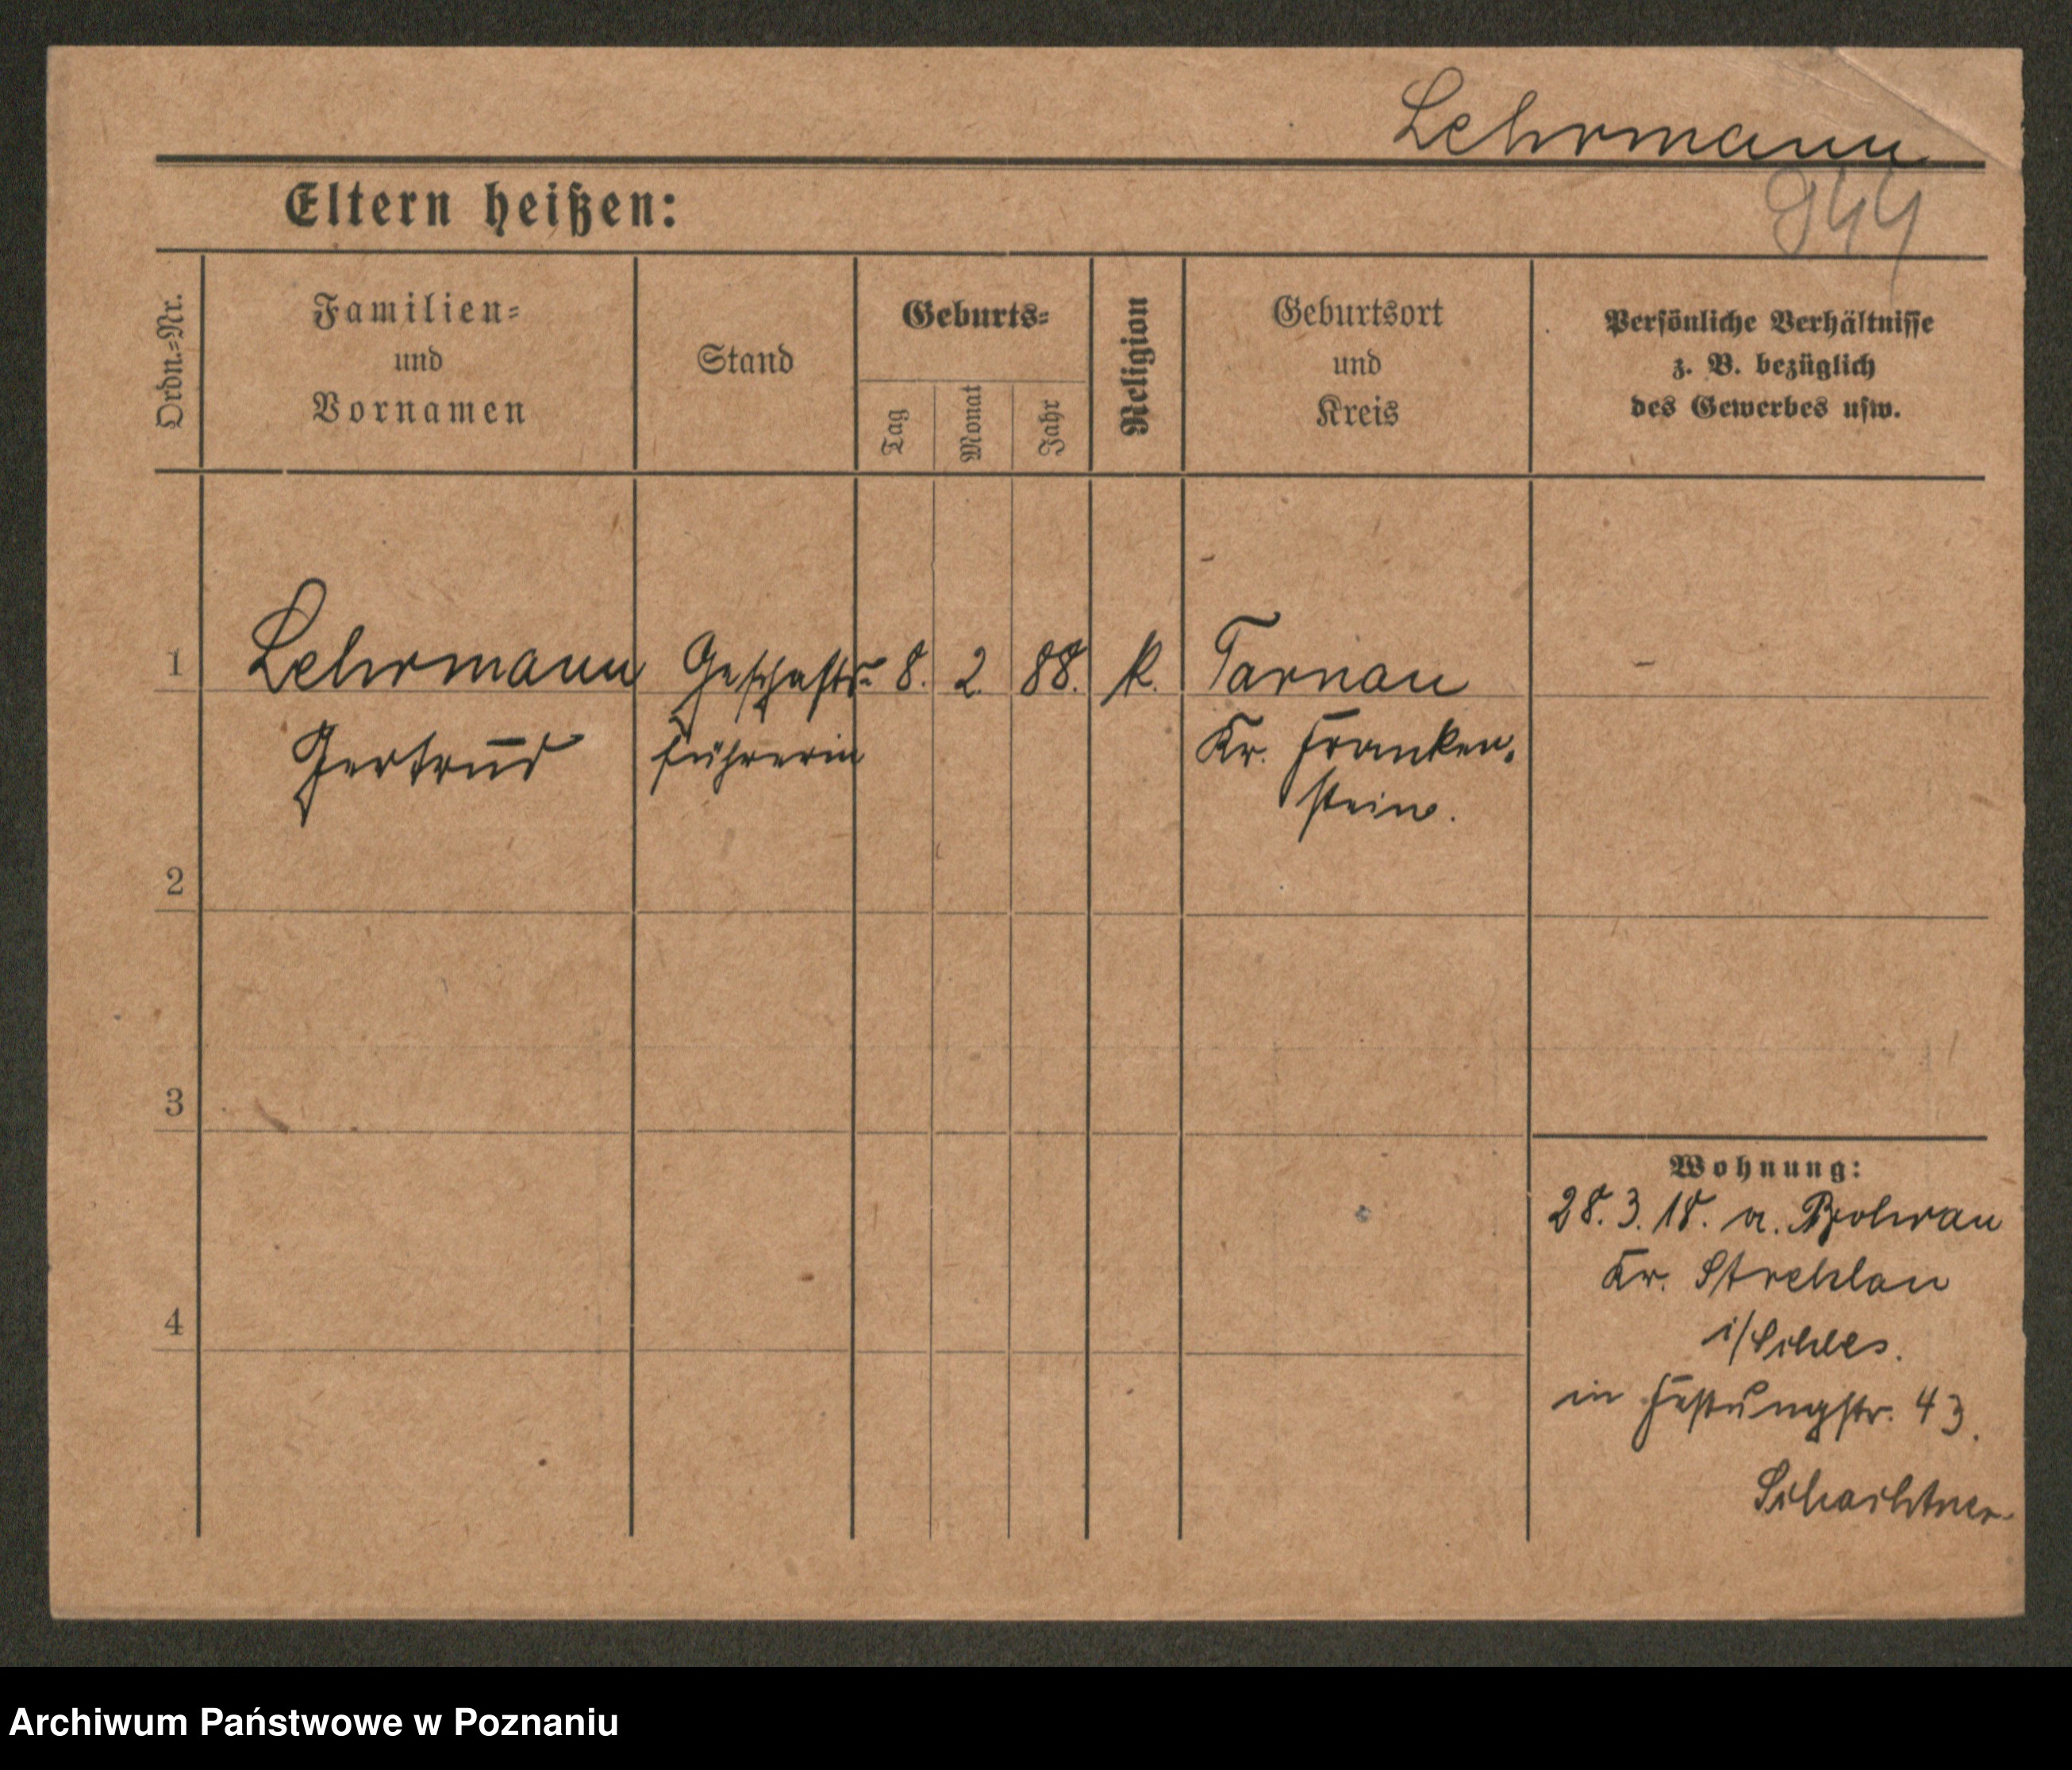 Lehrmann
944
Eltern heißen:
Ordn.=Nr.
Familien=
und
Vornamen
Stand
Geburts=
Tag
Monat
Jahr
Religion
Geburtsort
und
Kreis
Persönliche Verhältnisse
z. B. bezüglich
des Gewerbes usw.
1 Lehrmann Geschäfts= 8. 2. 88. k. Tarnau -
Gertrud führerin Kr. Franken=
stein.
2
3
4
Wohnung:
28. 3. 18. a.
Kr. Strehlau
i/Schles.
in Festungstr. 43.
Schachtner.
Archiwum Państwowe w Poznaniu